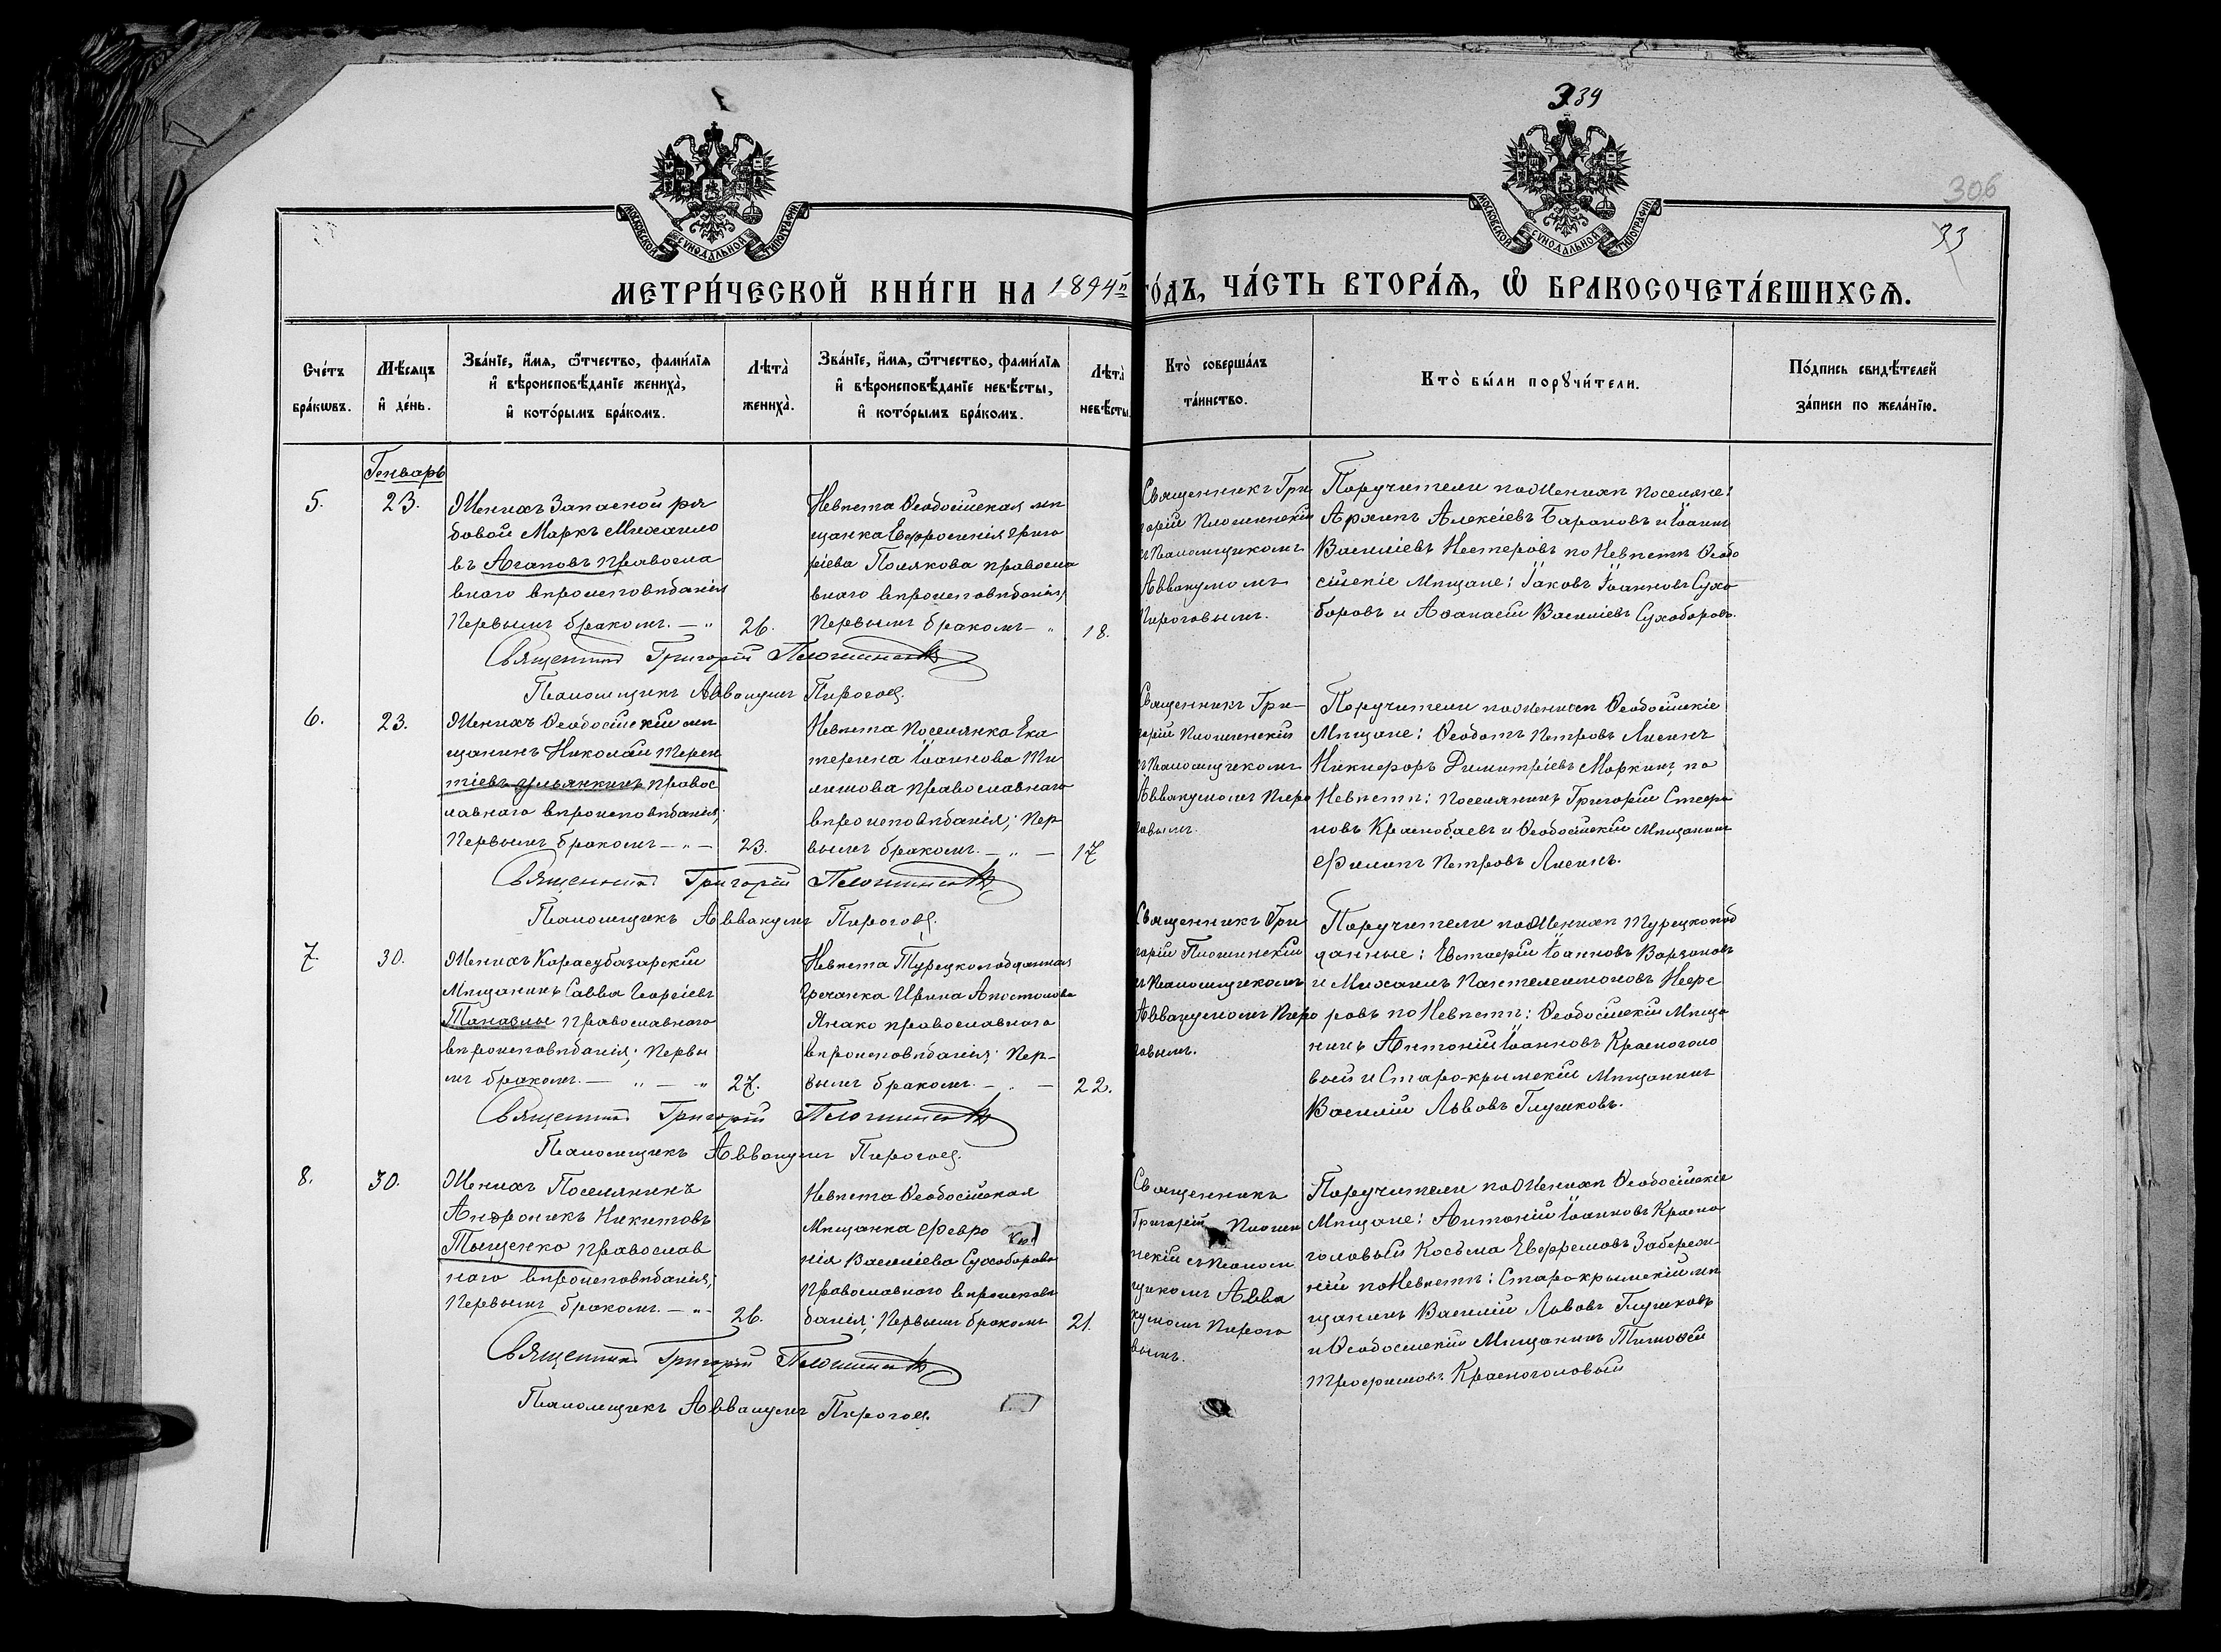 339
306
33
МОСКОВСКОЙ СѴНОДАЛЬНОЙ ТИПОГРАФІИ
МОСКОВСКОЙ СѴНОДАЛЬНОЙ ТИПОГРАФІИ
МЕТРИ́ЧЕСКОЙ КНИ́ГИ НА 1894й ГО́ДЪ, ЧА́СТЬ ВТОРА́Ѧ, Ѽ БРАКОСОЧЕТА́ВШИХСѦ.
Сче́тъ бра́кѡвъ.
Мѣ́сяцъ и҆ де́нь.
Зва́нїе, и҆́мѧ, ѻ҆́тчество, фами́лїѧ
и҆ вѣроисповѣ́данїе жениха̀,
и҆ кото́рымъ бра́комъ.
Лѣта̀ жениха̀.
Зва́нїе, и҆́мѧ, ѻ҆́тчество, фами́лїѧ
и҆ вѣроисповѣ́данїе невѣ́сты,
и҆ кото́рымъ бра́комъ.
Лѣта̀ невѣ́сты.
Кто̀ соверша́лъ
та́инство.
Кто̀ бы́ли порꙋчи́тели.
По́дпись свидѣ́телей
за́писи по жела́нїю.
Генварь
5.
23.
Женихъ Запасной ря
довой Маркъ Михаило
въ Агаповъ православ
внаго вѣроисповѣданія
Первымъ бракомъ. — "
26.
Невѣста Ѳеодосійская мѣ
щанка Евфросинія Григо
ріева Полякова правосла
внаго вѣроисповѣданія,
Первымъ бракомъ — "
18.
Священникъ Гри
горій Плошинскій
съ Псаломщикомъ
Аввакумомъ
Пироговымъ.
Поручители по Женихѣ поселяне:
Архипъ Алексіевъ Барановъ и Іоаннъ
Василіевъ Нестеровъ по Невѣстѣ Ѳеодо
сійскіе Мѣщане: Іаковъ Іоанновъ Сухо
боровъ и Аѳанасій Василіевъ Сухоборовъ.
Священникъ Григорій Плошинскій
Псаломщикъ Аввакумъ Пироговъ.
6.
23.
Женихъ Ѳеодосійскій мѣ
щанинъ Николай Терен
тіевъ Ульянкинъ правос
лавнаго вѣроисповѣданія;
Первымъ бракомъ — " —
23.
Невѣста Поселянка Ека
терина Іоаннова Ти
православнаго
вѣроисповѣданія; Пер
вымъ бракомъ. — " —
17
Священникъ Гри-
горій Плошинскій
съ Псаломщикомъ
Аввакумомъ Пиро
говымъ.
Поручители по Женихѣ Ѳеодосійскіе
Мѣщане: Ѳеодотъ Петровъ Лисинъ
Никифоръ Димитріевъ Маркинъ, по
Невѣстѣ: поселянинъ Григорій Стефа
новъ Краснобаевъ и Ѳеодосійскій Мѣщанинъ
Филипъ Петровъ Лисинъ.
Священникъ Григорій Плошинскій
Псаломщикъ Аввакумъ Пироговъ.
7.
30.
Женихъ Карасубазарскій
Мѣщанинъ Савва Георгіевъ
Танаглы православнаго
вѣроисповѣданія; Первы
мъ бракомъ. — " — "
27.
Невѣста Турецкоподданная
Гречанка Ирина Апостолова
Янако православнаго
вѣроисповѣданія; Пер-
вымъ бракомъ. — " —
22.
Священникъ Гри
горій Плошинскій
съ Псаломщикомъ
Аввакумомъ Пиро
говымъ.
Поручители по Женихѣ Турецкопод
данные: Евстафій Іоанновъ
и Михаилъ Пантелеимоновъ
ровъ по Невѣстѣ: Ѳеодосійскій Мѣща
нинъ Антоній Іоанновъ Красноголо
вый и Старо-крымскій Мѣщанинъ
Василій Львовъ Глушковъ.
Священникъ Григорій Плошинскій
Псаломщикъ Аввакумъ Пироговъ.
8.
30.
Женихъ Поселянинъ
Андроникъ Никитовъ
Тыщенко православ
наго вѣроисповѣданія;
Первымъ бракомъ. — " -
26.
Невѣста Ѳеодосійская
Мѣщанка Февро
нія Василіева Сухоборова
Православнаго вѣроисповѣ
данія; Первымъ бракомъ
21.
Священникъ
Григорій Плошин
скій съ Псалом
щикомъ Авва
кумомъ Пирого
вымъ.
Поручители по Женихѣ Ѳеодосійскіе
Мѣщане: Антоній Іоанновъ Красно
головый Косьма Ефремовъ
ній по Невѣстѣ: Старо-крымскій мѣ
щанинъ Василій Львовъ Глушковъ
и Ѳеодосійскій Мѣщанинъ Тимоѳей
Трофимовъ Красноголовый
Священникъ Григорій Плошинскій
Псаломщикъ Аввакумъ Пироговъ.